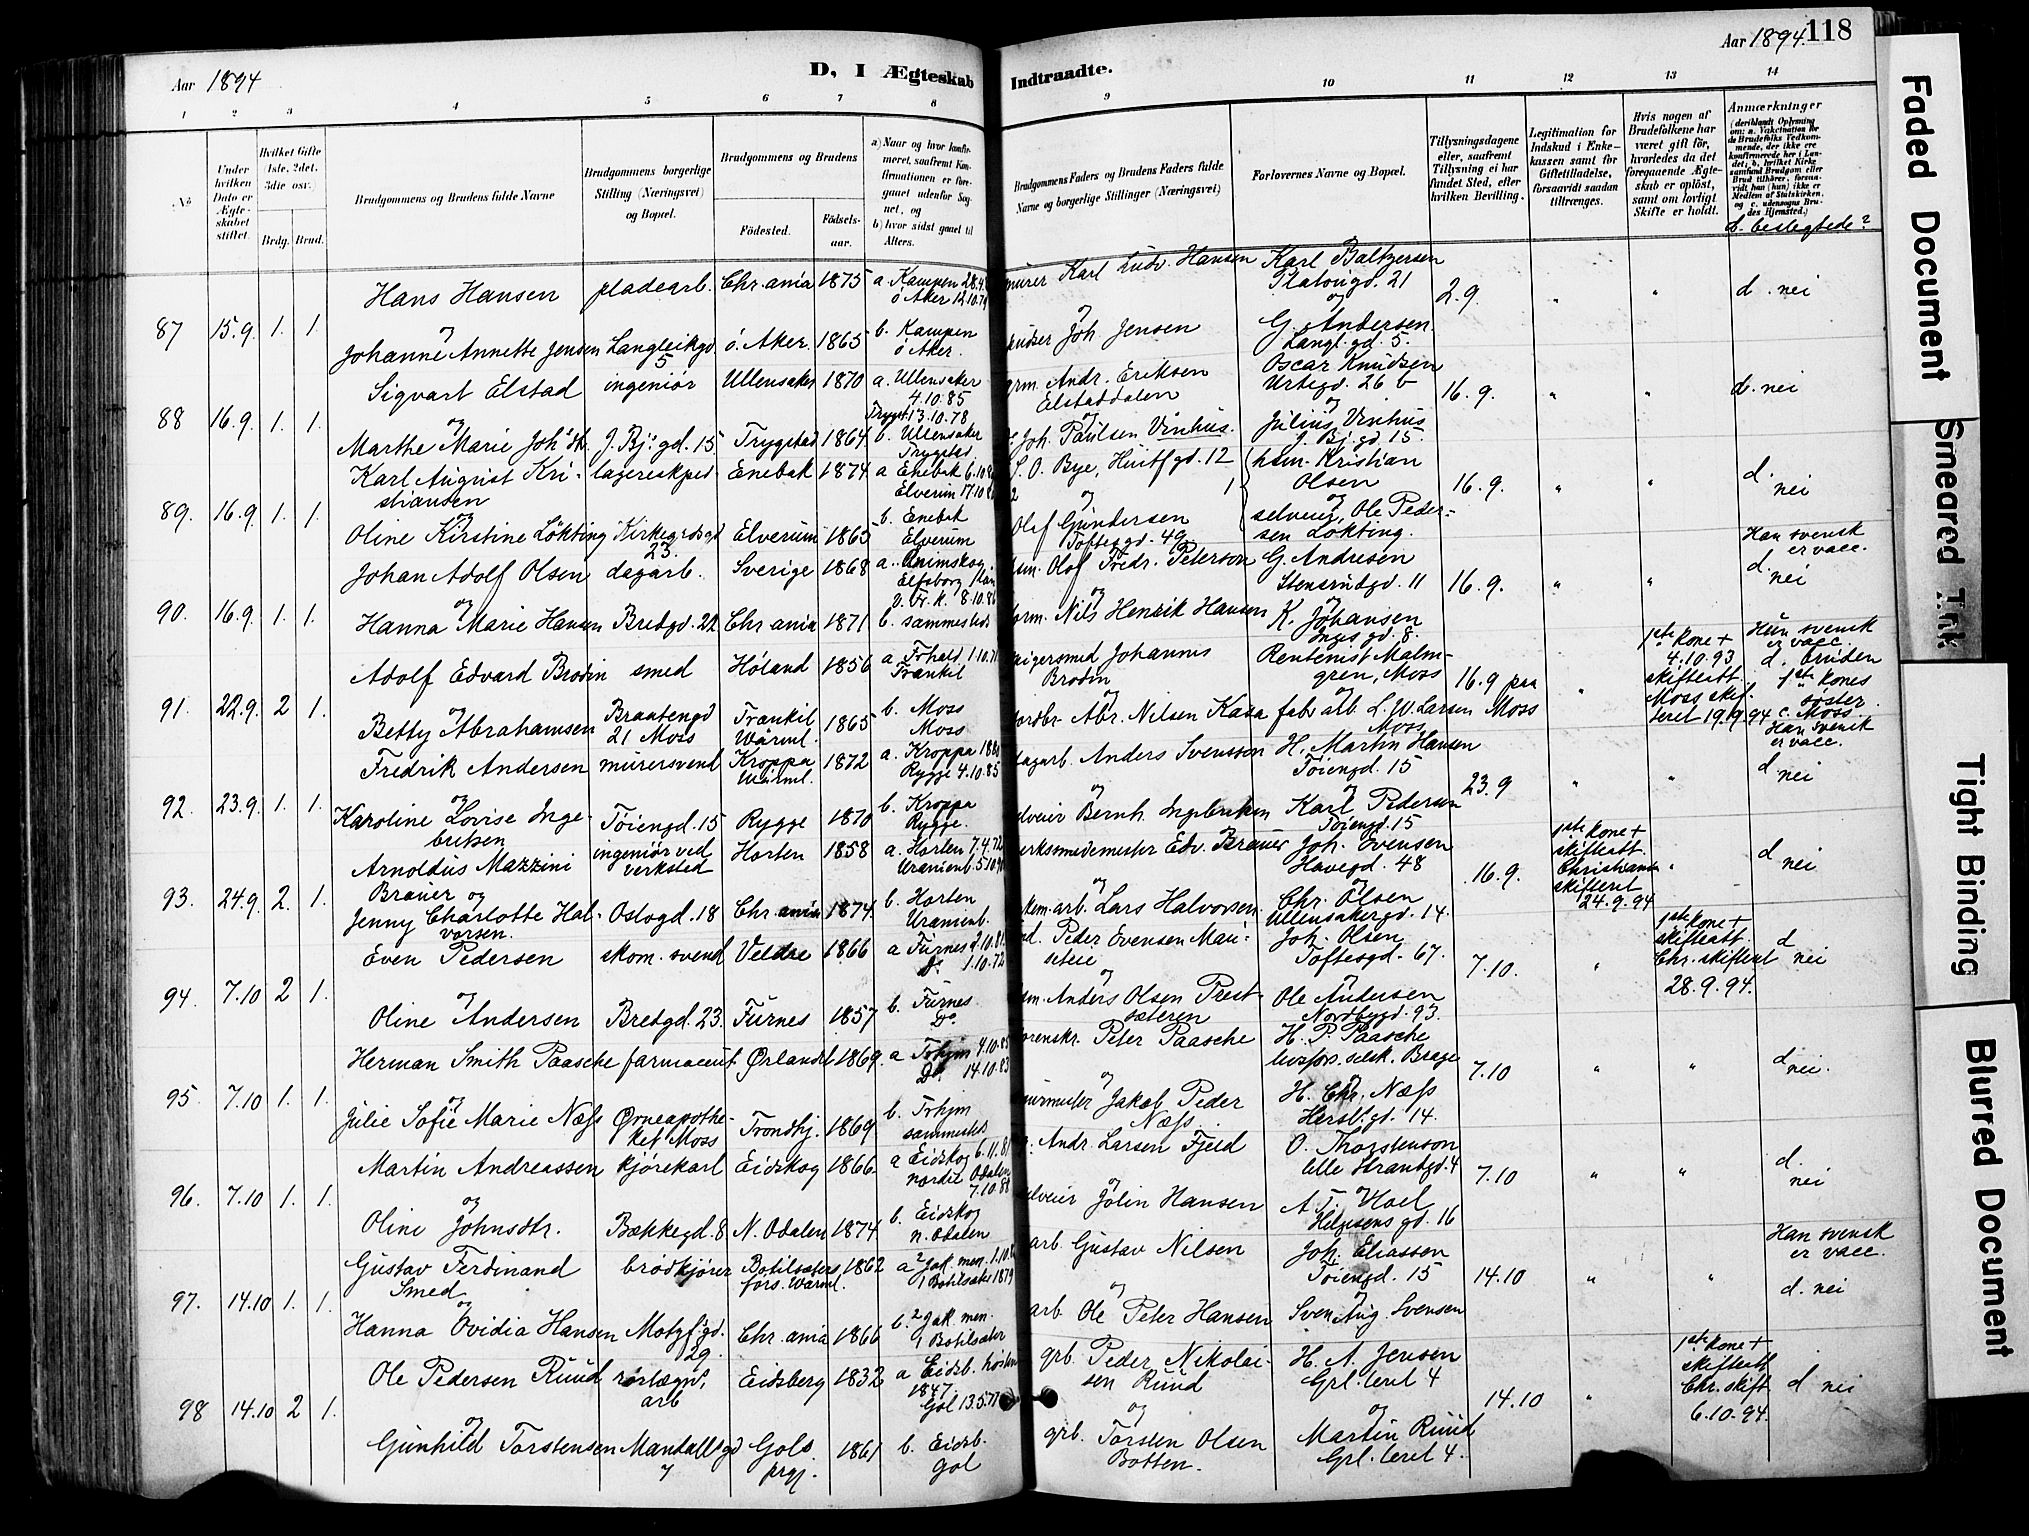 Aar 1894 D, I Ægteskab Indtraadte. Aar 1894. 118
1 2 3 4 5 6 7 8 9 10 11 12 13 14
No
Under hvilken Dato er Ægteskabet stiftet.
Hvilket Gifte (1ste, 2det, 3die osv.)
Brdg. Brud.
Brudgommens og Brudens fulde Navne
Brudgommens borgerlige Stilling (Næringsvei) og Bopæl.
Brudgommens og Brudens
Födested. Födselsaar.
a) Naar og hvor konfirmeret, saafremt Konfirmationen er foregaaet udenfor Sognet, og
b) hvor sidst gaaet til Alters.
Brudgommens Faders og Brudens Faders fulde Navne og borgerlige Stillinger (Næringsvei)
Forlovernes Navne og Bopæl.
Tillysningsdagene eller, saafremt Tillysning ei har fundet Sted, efter hvilken Bevilling.
Legitimation for Indskud i Enkekassen samt for Giftetilladelse, forsaavidt saadan tiltrænges.
Hvis nogen af Brudefolkene har været gift för, hvorledes da det foregaaende Ægteskab er oplöst, samt om lovligt Skifte er holdt.
Anmærkninger (deriblandt Oplysning om: a. Vakcination for de Brudefolks Vedkommende, der ikke ere konfirmerede her i Landet; b. hvilket Kirkesamfund Brudgom eller Brud tilhører, forsaavidt han (hun) ikke er Medlem af Statskirken, og c. udensogns Brudes Hjemsted.)
d. beslegtede?
87 15.9. 1. 1.
Hans Hansen pladearb. Chr.ania 1875 a. Kampen
ö Aker
murer Karl Ludv. Hansen Karl Baltzersen
Platougd. 21 2.9. " " d. nei
og
Johanne Annette Jensen Langleikgd. 5 ö. Aker. 1865 b. Kampen
ö Aker.
og Joh. Jensen
og
G. Andersen
Langl.gd. 5.
88 16.9. 1. 1.
Sigvart Elstad ingeniör Ullensaker 1870 a. Ullensaker
4.10.85
Trygst. 13.10.78
grm. Andr. Eriksen
Elstaddalen
Oscar Knudsen
Urtegd. 26 b 16.9. " " d. nei
og
Marthe Marie Joh.sdtr. J. Bj.s gd. 15. Trygstad 1864 b. Ullensaker
Trygstad
og
Joh. Paulsen Vinhus.
og
Julius Vinhus
J. Bj. gd. 15.
89. 16.9. 1. 1.
Karl August Kristiansen lagerekped. Enebak 1874 a Enebak
Elverum
S. O. Bye, Huitf.gd. 12
hsm. Kristian
Olsen 16.9. " " d. nei
og
Oline Kirstine Lökting Kirkegrdsgd 23. Elverum 1865 b. Enebak
Elverum
og
Olaf Gundersen
Toftesgd. 49
og
selveier Ole Pedersen Lökting.
90. 16.9. 1. 1.
Johan Adolf Olsen dagarb. Sverige 1868 a. Animskog
Elfsborg
8.10.86
hsm. Olof Fredr. Peterson G. Andresen
Stensrudgd. 11 16.9. " "
Han svensk
er vacc.
d. nei
og
Hanna Marie Hansen Bredgd. 22 Chr.ania 1871 b. sammesteds
og
form. Nils Henrik Hansen K. Johansen
Inges gd. 8.
91. 22.9. 2 1.
Adolf Edvard Brodin smed Höland 1856 a Frhald
Trankil
Johannes
Brodin
Rentenist Malmgren, Moss 16.9 paa Moss "
1ste kone +
4.10.93
skifteatt.
Moss skifteret 19.9.94
Hun svensk
er vacc.
d. bruden
1ste kones
söster
c. Moss
og
Betty Abrahamsen Braatengd 21 Moss Trankil
Wärml. 1865 b. Moss
Moss
og
jordbr. Abr. Nilsen Kasa fabr.arb. L. W. Larsen
Moss
92. 23.9. 1. 1.
Fredrik Andersen murersvend Kroppa
Wärml. 1872 a. Kroppa
Rygge 4.10.85
dagarb. Anders Svensson H. Martin Hansen
Töiengd. 15 23.9 " "
Han svensk
er vacc.
d nei
og
Karoline Lovise Ingebretsen Töiengd. 15 Rygge 1870 b. Kroppa
Rygge.
og
selveier Bernh. Ingebretsen
og
Karl Pedersen
Töiengd. 15
93. 24.9. 2. 1.
Arnoldus Mazzini
Brauer ingeniör ved
verksted Horten 1858 a. Horten 7.4.72
Uranienb.
verksmedemester Edv. Brauer Joh. Evensen
Havegd. 48 16.9.
1ste kone +
skifteatt.
Christiania
skifteret
24.9.94
" d nei
og
Jenny Charlotte Halvorsen. Oslogd. 18 Chr.ania 1874 b. Horten
Uranienb.
og
Lars Halvorsen
og
Chr. Olsen
Ullensakergd. 14.
94. 7.10 2 1.
Even Pedersen skom. svend Veldre 1866 a Furnes
Do 1.10.72
Peder Evensen
Joh. Olsen
Toftesgd. 67. 7.10. "
1ste kone +
skifteatt.
Chr. skifteret
28.9.94.
d nei
og
Oline Andersen Bredgd. 23. Furnes 1857 b. Furnes
Do
og
Anders Olsen Prestsæteren
Ole Andersen
Nordbygd. 93.
95. 7.10 1. 1.
Herman Smith Paasche farmaceut Ørlandet 1869. a Trhjm
Do 14.10.83
Peter Paasche H. P. Paasche
livsfors. selsk. Brage 7.10 " " d nei.
og
Julie Sofie Marie Næss Ørneapotheket Moss Trondhj. 1869 b. Trhjm
sammesteds
og
murmester Jakob Peder
Næss
og
H. Chr. Næss
Herslbgd. 14.
96. 7.10 1. 1.
Martin Andreassen kjörekarl Eidskog 1866. a Eidskog 6.11.81
nordre Odalen
7.10.88
Andr. Larsen Fjeld O. Thorstenson
lille Strandgd. 4 7.10 " " d. nei
og
Oline Johnsdtr. Bækkegd. 8 N. Odalen 1874 b. Eidskog
n. Odalen
og
selveier John Hansen
og
A. T. Hoel
Helgesens gd. 16
97. 14.10 1. 1.
Gustav Ferdinand
Smed brödkjörer Botilsäters
fors. Wärml. 1862 a 2 Jak. men.
1 Botilsäter 1879
arb. Gustav Nilsen Joh. Eliassen
Töiengd. 15 14.10 " "
Han svensk
er vacc.
d. nei
og
Hanna Ovidia Hansen Motzf.gd. 29. Chr.ania 1866 b. 2 Jak. men.
1 Botilsäter
og
arb. Ole Peter Hansen
og
Sven Aug. Svensen
98 14.10 2 1.
Ole Pedersen Ruud rörlægn. arb Eidsberg 1832 a Eidsb. hösten
1847
Gol 13.5.77
grb. Peder Nikolaisen Ruud
H. A. Jensen
Grl. leret 4 14.10 "
1ste kone +
skifteatt
Chr. skift.
6.10.94.
d nei
og
Gunhild Torstensen Mandallsgd 7 Gols
prgj. 1861 b. Eidsb.
Gol
og
grb. Torsten Olsen
Botten.
og
Martin Ruud
Grl. leret 4.
Faded Document
Smeared Ink
Tight Binding
Blurred Document